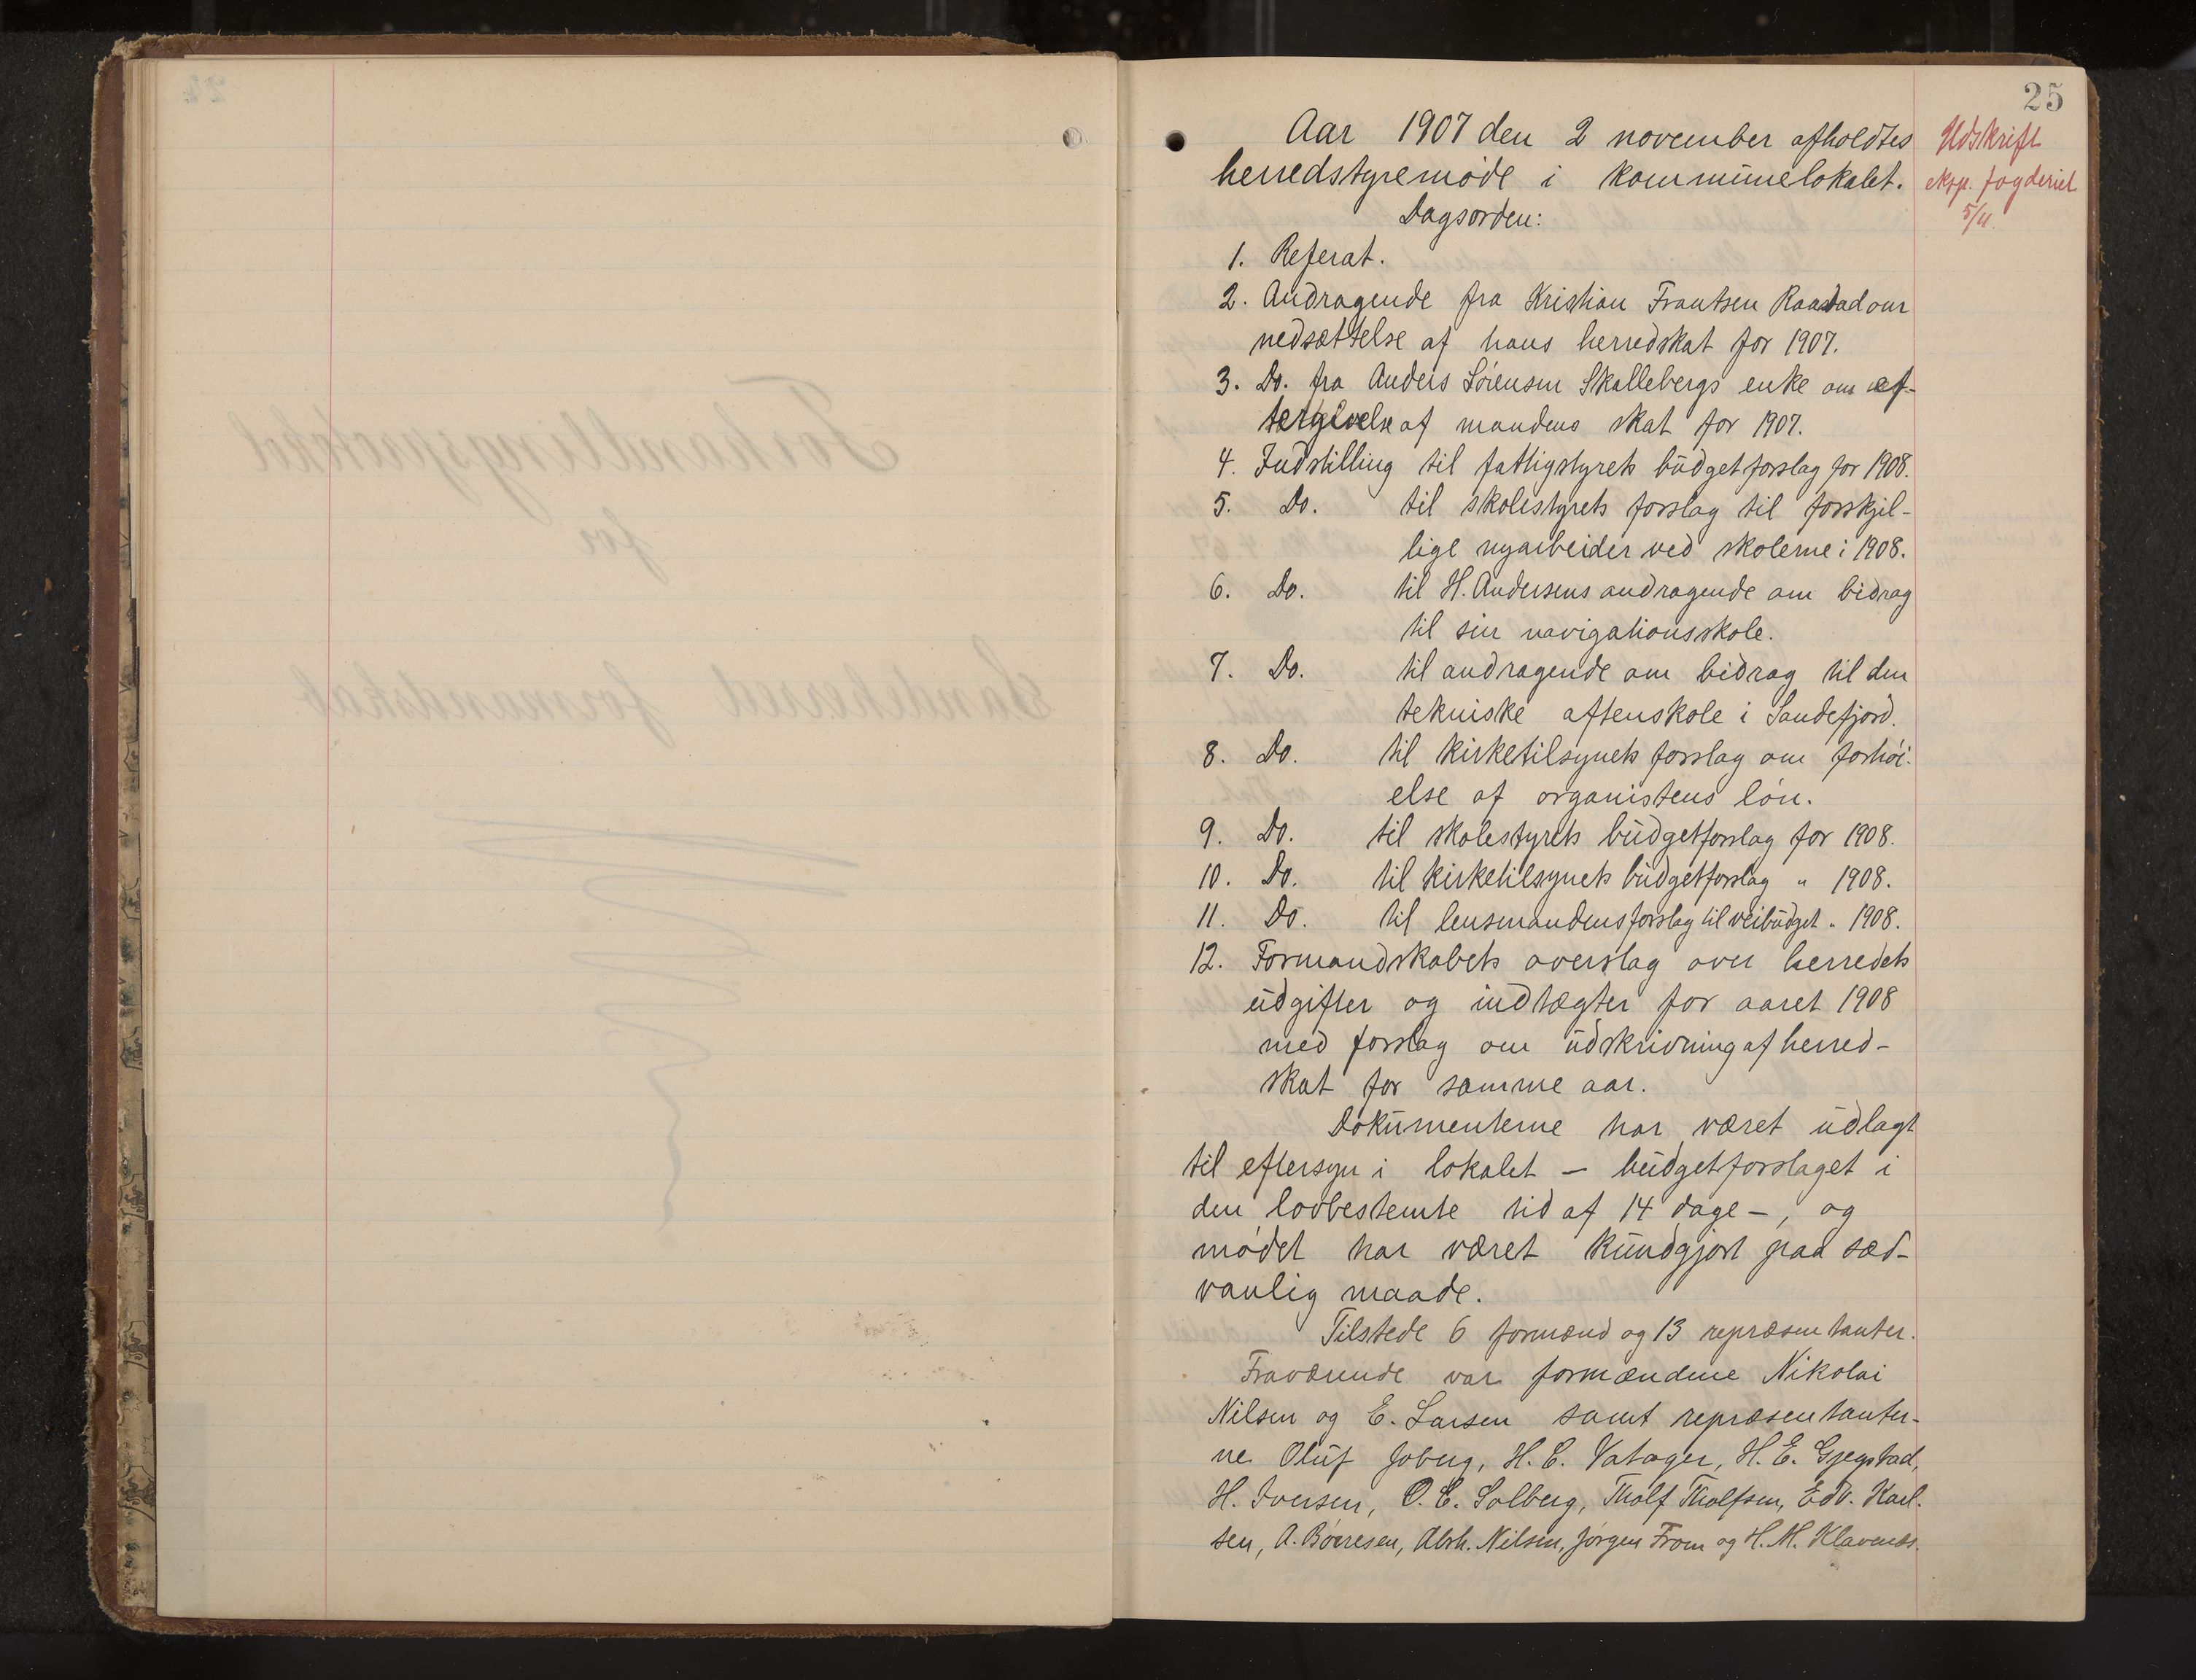 25
Aar 1907 den 2 november afholdtes
herredstyremöde i kommunelokalet.
Udskrift
eksp. fogderiet
5/11.
Dagsorden:
1. Referat.
2. Andragende fra Kristian Frantsen Raastad om
nedsættelse af hans herredskat for 1907.
3. Do. fra Anders Sörensen Skallebergs enke om ef-
tergivelse af mandens skat for 1907.
4. Indstilling til fattigstyrets budgetforslag for 1908.
5. Do. til skolestyrets forslag til forskjel-
lige nyarbeider ved skolerne i 1908.
6. Do. til H. Andersens andragende om bidrag
til sin navigationsskole.
7. Do. til andragende om bidrag til den
tekniske aftenskole i Sandefjord.
8. Do. til kirketilsynets forslag om forhöi-
else af organistens lön.
9. Do. til skolestyrets budgetforslag for 1908.
10. Do. til kirketilsynets budgetforslag " 1908.
11. Do. til lensmandens forslag til veibudget " 1908.
12. Formandskabets overslag over herredets
udgifter og indtægter for aaret 1908
med forslag om udskrivning af herred-
skat for samme aar.
Dokumenterne har været udlagt
til eftersyn i lokalet — budgetforslaget i
den lovbestemte tid af 14 dage —, og
mödet har været kundgjort paa sæd-
vanlig maade.
Tilstede 6 formænd og 13 repræsentanter.
Fraværende var formændene Nikolai
Nilsen og E. Larsen samt repræsentanter-
ne Oluf Joberg, H. C. Vatager, H. E. Gjegstad,
H. Iversen, O. C. Solberg, Tholf Tholfsen, Edv. Karl-
sen, A. Böeresen, Abrh. Nilsen, Jörgen From og H. M. Klavenæs.
Forhandlingsprotokol
for
Sandeherred formandskab